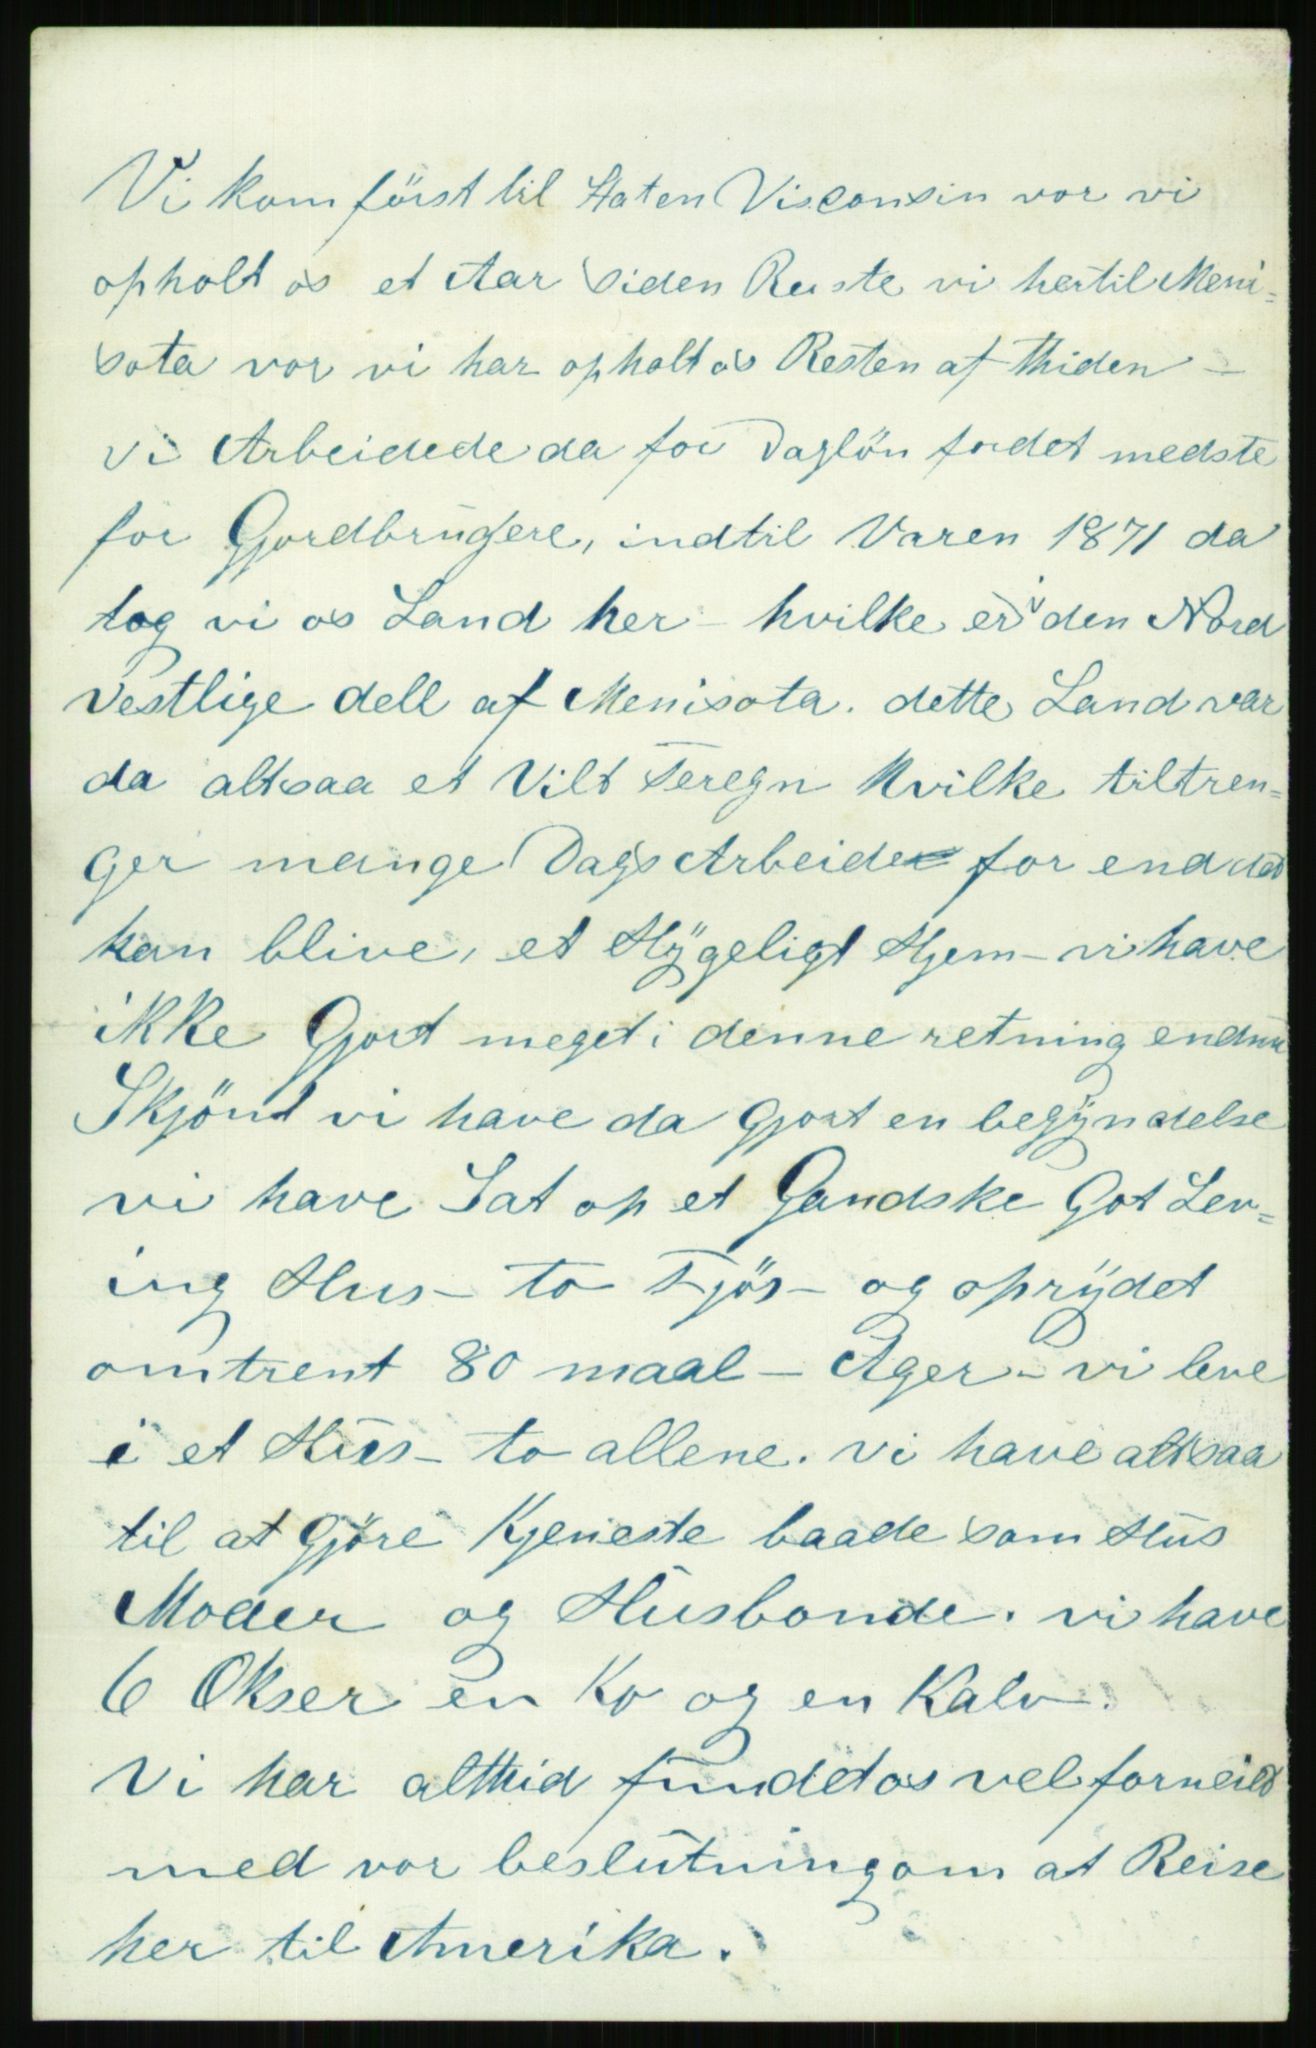 Vi kom först til Staten Visconsin vor vi
opholt os et Aar siden Reiste vi hertil Meni=
sota vor vi har opholt os Resten af Thiden –
vi Arbeidede da for Daglön fordet medste
for Gjordbrugere, indtil Varen 1871 da
tog vi os Land her – hvilke er i den Nord
vestlige dell af Menisota. dette Land var
da altsaa et Vilt Teregn Hvilke tiltren=
ger mange Dags Arbeide for end det
kan blive, et Hÿgeligt Hjem – vi have
ikke Gjort meget i denne retning endnu
Skjönt vi have da Gjort en begÿndelse
vi have Sat op et Gandske Got Lev=
ing Hus – to Fjös – og oprÿdet
omtrent 80 maal – Ager – vi leve
i et Hus – to allene. vi have altsaa
til at Gjöre Kjeneste baade som Hus
Moder og Husbonde. vi have
6 Okser en Ko og en Kalv.
Vi har althid fundet os vel forneilt
med vor beslutning om at Reise
her til Amerika.